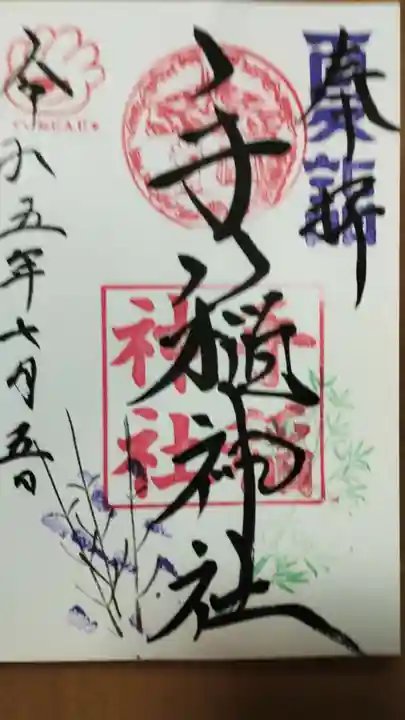 夏詣
奉拝
手稲神社
手稲
神社
令和五年七月五日